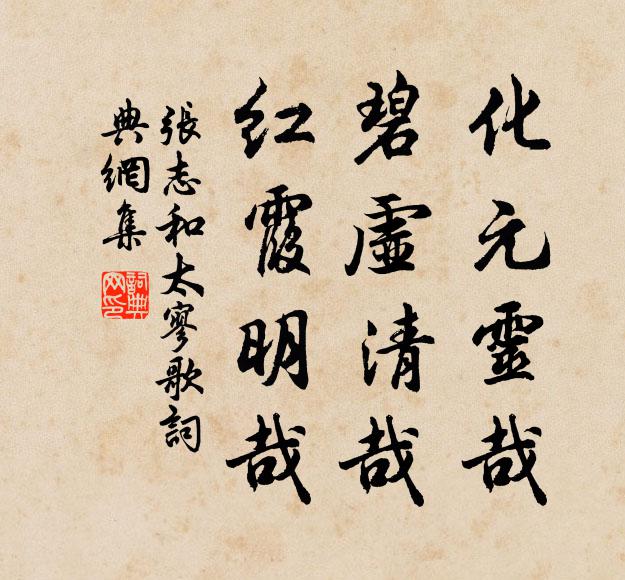 化元靈哉
碧虛清哉
紅霞明哉
張志和太寥歌詞
典網集
詞典网印